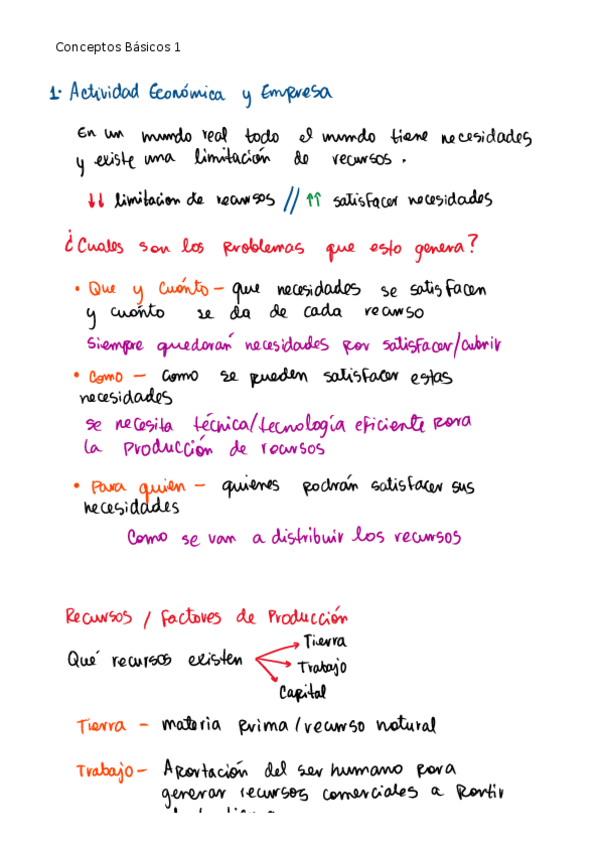 Conceptos Básicos 1
1. Actividad Económica y Empresa
En un mundo real todo el mundo tiene necesidades
y existe una limitación de recursos.
↓↓ limitacion de recursos // ↑↑ satisfacer necesidades
¿Cuales son los problemas que esto genera?
• Que y Cuánto – que necesidades se satisfacen
y cuanto se da de cada recurso
Siempre quedarán necesidades por satisfacer/cubrir
• Como – como se pueden satisfacer estas
necesidades
se necesita técnica/tecnología eficiente para
la producción de recursos
• Para quien – quienes podrán satisfacer sus
necesidades
Como se van a distribuir los recursos
Recursos / Factores de Producción
Tierra
Qué recursos existen
Trabajo
Capital
Tierra – materia prima/recurso natural
Trabajo – Aportación del ser humano para
generar recursos comerciales a partir